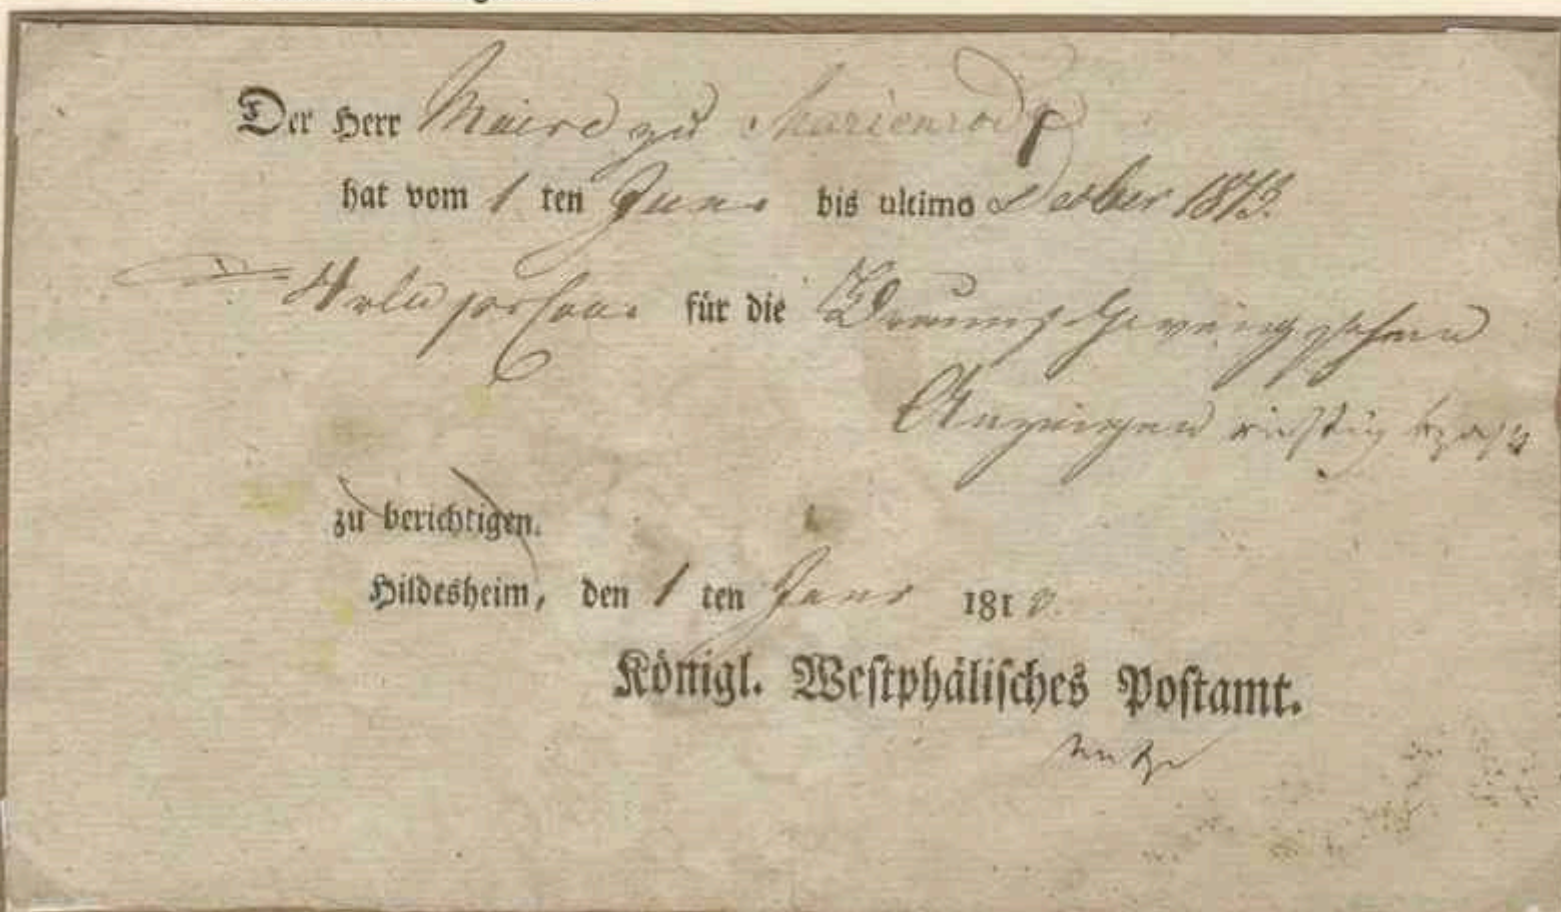 Der Herr Maire zu Marienrode
hat vom 1 ten Juni bis ultimo Decbr 1813.
für die Braunschweigischen
Anzeigen richtig bezahlt
zu berichtigen.
Hildesheim, den 1 ten 181
Königl. Westphälisches Postamt.